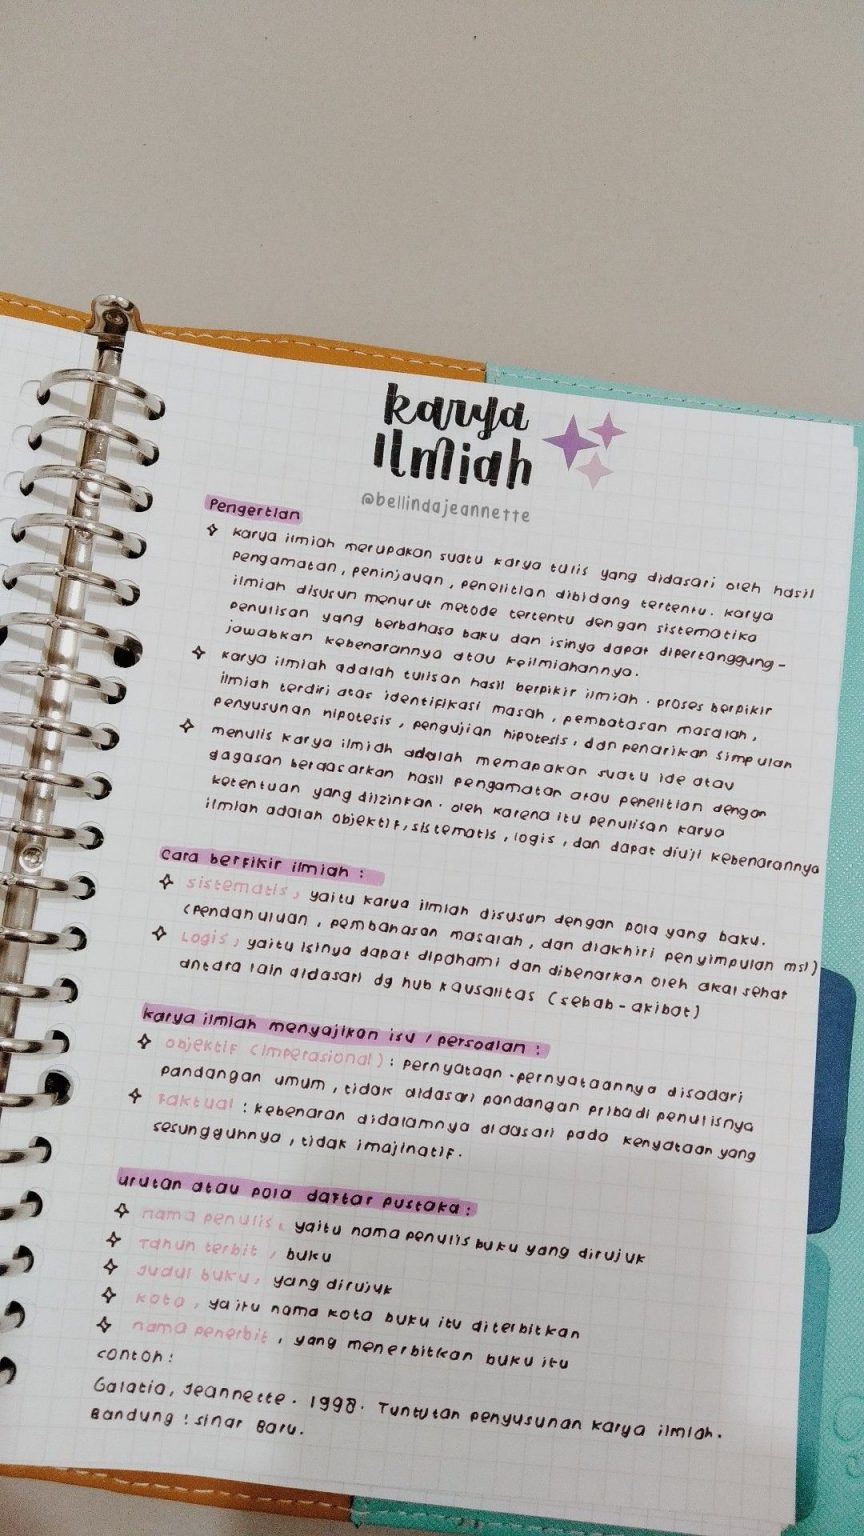 karya
ilmiah
@bellindajeannette
Pengertian
karya ilmiah merupakan suatu karya tulis yang didasari oleh hasil
pengamatan, peninjauan, penelitian dibidang tertentu. karya
ilmiah disusun menurut metode tertentu dengan sistematika
penulisan yang berbahasa baku dan isinya dapat dipertanggung-
jawabkan kebenarannya atau keilmiahannya.
karya ilmiah adalah tulisan hasil berpikir ilmiah. proses berpikir
ilmiah terdiri atas identifikasi masah, pembatasan masalah,
penyusunan hipotesis, pengujian hipotesis, dan penarikan simpulan
menulis karya ilmiah adalah memapakan suatu ide atau
gagasan berdasarkan hasil pengamatan atau penelitian dengan
ketentuan yang diizinkan. oleh karena itu penulisan karya
ilmiah adalah objektif, sistematis, logis, dan dapat diuji kebenarannya
cara berfikir ilmiah :
sistematis, yaitu karya ilmiah disusun dengan pola yang baku.
(pendahuluan, pembahasan masalah, dan diakhiri penyimpulan msl)
Logis, yaitu isinya dapat dipahami dan dibenarkan oleh akal sehat
antara lain didasari dg hub kausalitas (sebab-akibat)
karya ilmiah menyajikan isu / persoalan :
objektif (imperasional) : pernyataan-pernyataannya disadari
pandangan umum, tidak didasari pandangan pribadi penulisnya
Faktual : kebenaran didalamnya didasari pada kenyataan yang
sesungguhnya, tidak imajinatif.
urutan atau pola daftar pustaka :
nama penulis, yaitu nama penulis buku yang dirujuk
Tahun terbit, buku
judul buku, yang dirujuk
kota, yaitu nama kota buku itu diterbitkan
nama penerbit, yang menerbitkan buku itu
contoh :
Galatia, Jeannette. 1998. Tuntutan penyusunan karya ilmiah.
Bandung : sinar Baru.